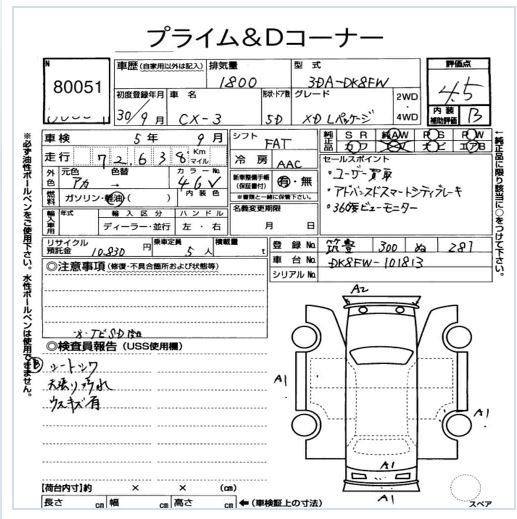 プライム&Dコーナー
80051
車歴(自家用以外は記入) 排気量 1800 型式 3DA-DK8FW
初度登録年月 30/9月 車名 CX-3 形状・ドア数 5D グレード XD Lパッケージ 2WD・4WD
評価点 4.5
内装補助評価 B
車検 5年 9月
走行 72,638 Km マイル
外色 元色 アカ → 色替 カラーNo. 46V 内装色
燃料 ガソリン・軽油( )
輸入車用 年式 輸入区分 ディーラー・並行 ハンドル 左・右
リサイクル預託金 10,830円 乗車定員 5人 積載量 t
シフト FAT
冷房 AAC
新車整備手帳(保証書付) 有・無
※書類と一緒に保管下さい。
名義変更期限 月 日
純正品 SR 純AW PS PW
カワ ナビ エアB
セールスポイント
・ユーザー買取
・アドバンスドスマートシティブレーキ
・360°ビューモニター
登録No. 筑豊 300 ぬ 287
車台No. DK8FW-101813
シリアルNo.
◎注意事項(修復・不具合箇所および状態等)
◎検査員報告(USS使用欄)
B
シートシワ
天張り汚れ
ウスキズ有
A2
A1
A1
A1
A1
スペア
【荷台内寸】約 × × (cm)
長さ cm 幅 cm 高さ cm ←(車検証上の寸法)
※必ず油性ボールペンをご使用下さい。水性ボールペンは使用できません。
←純正品に限り該当に○をつけて下さい。